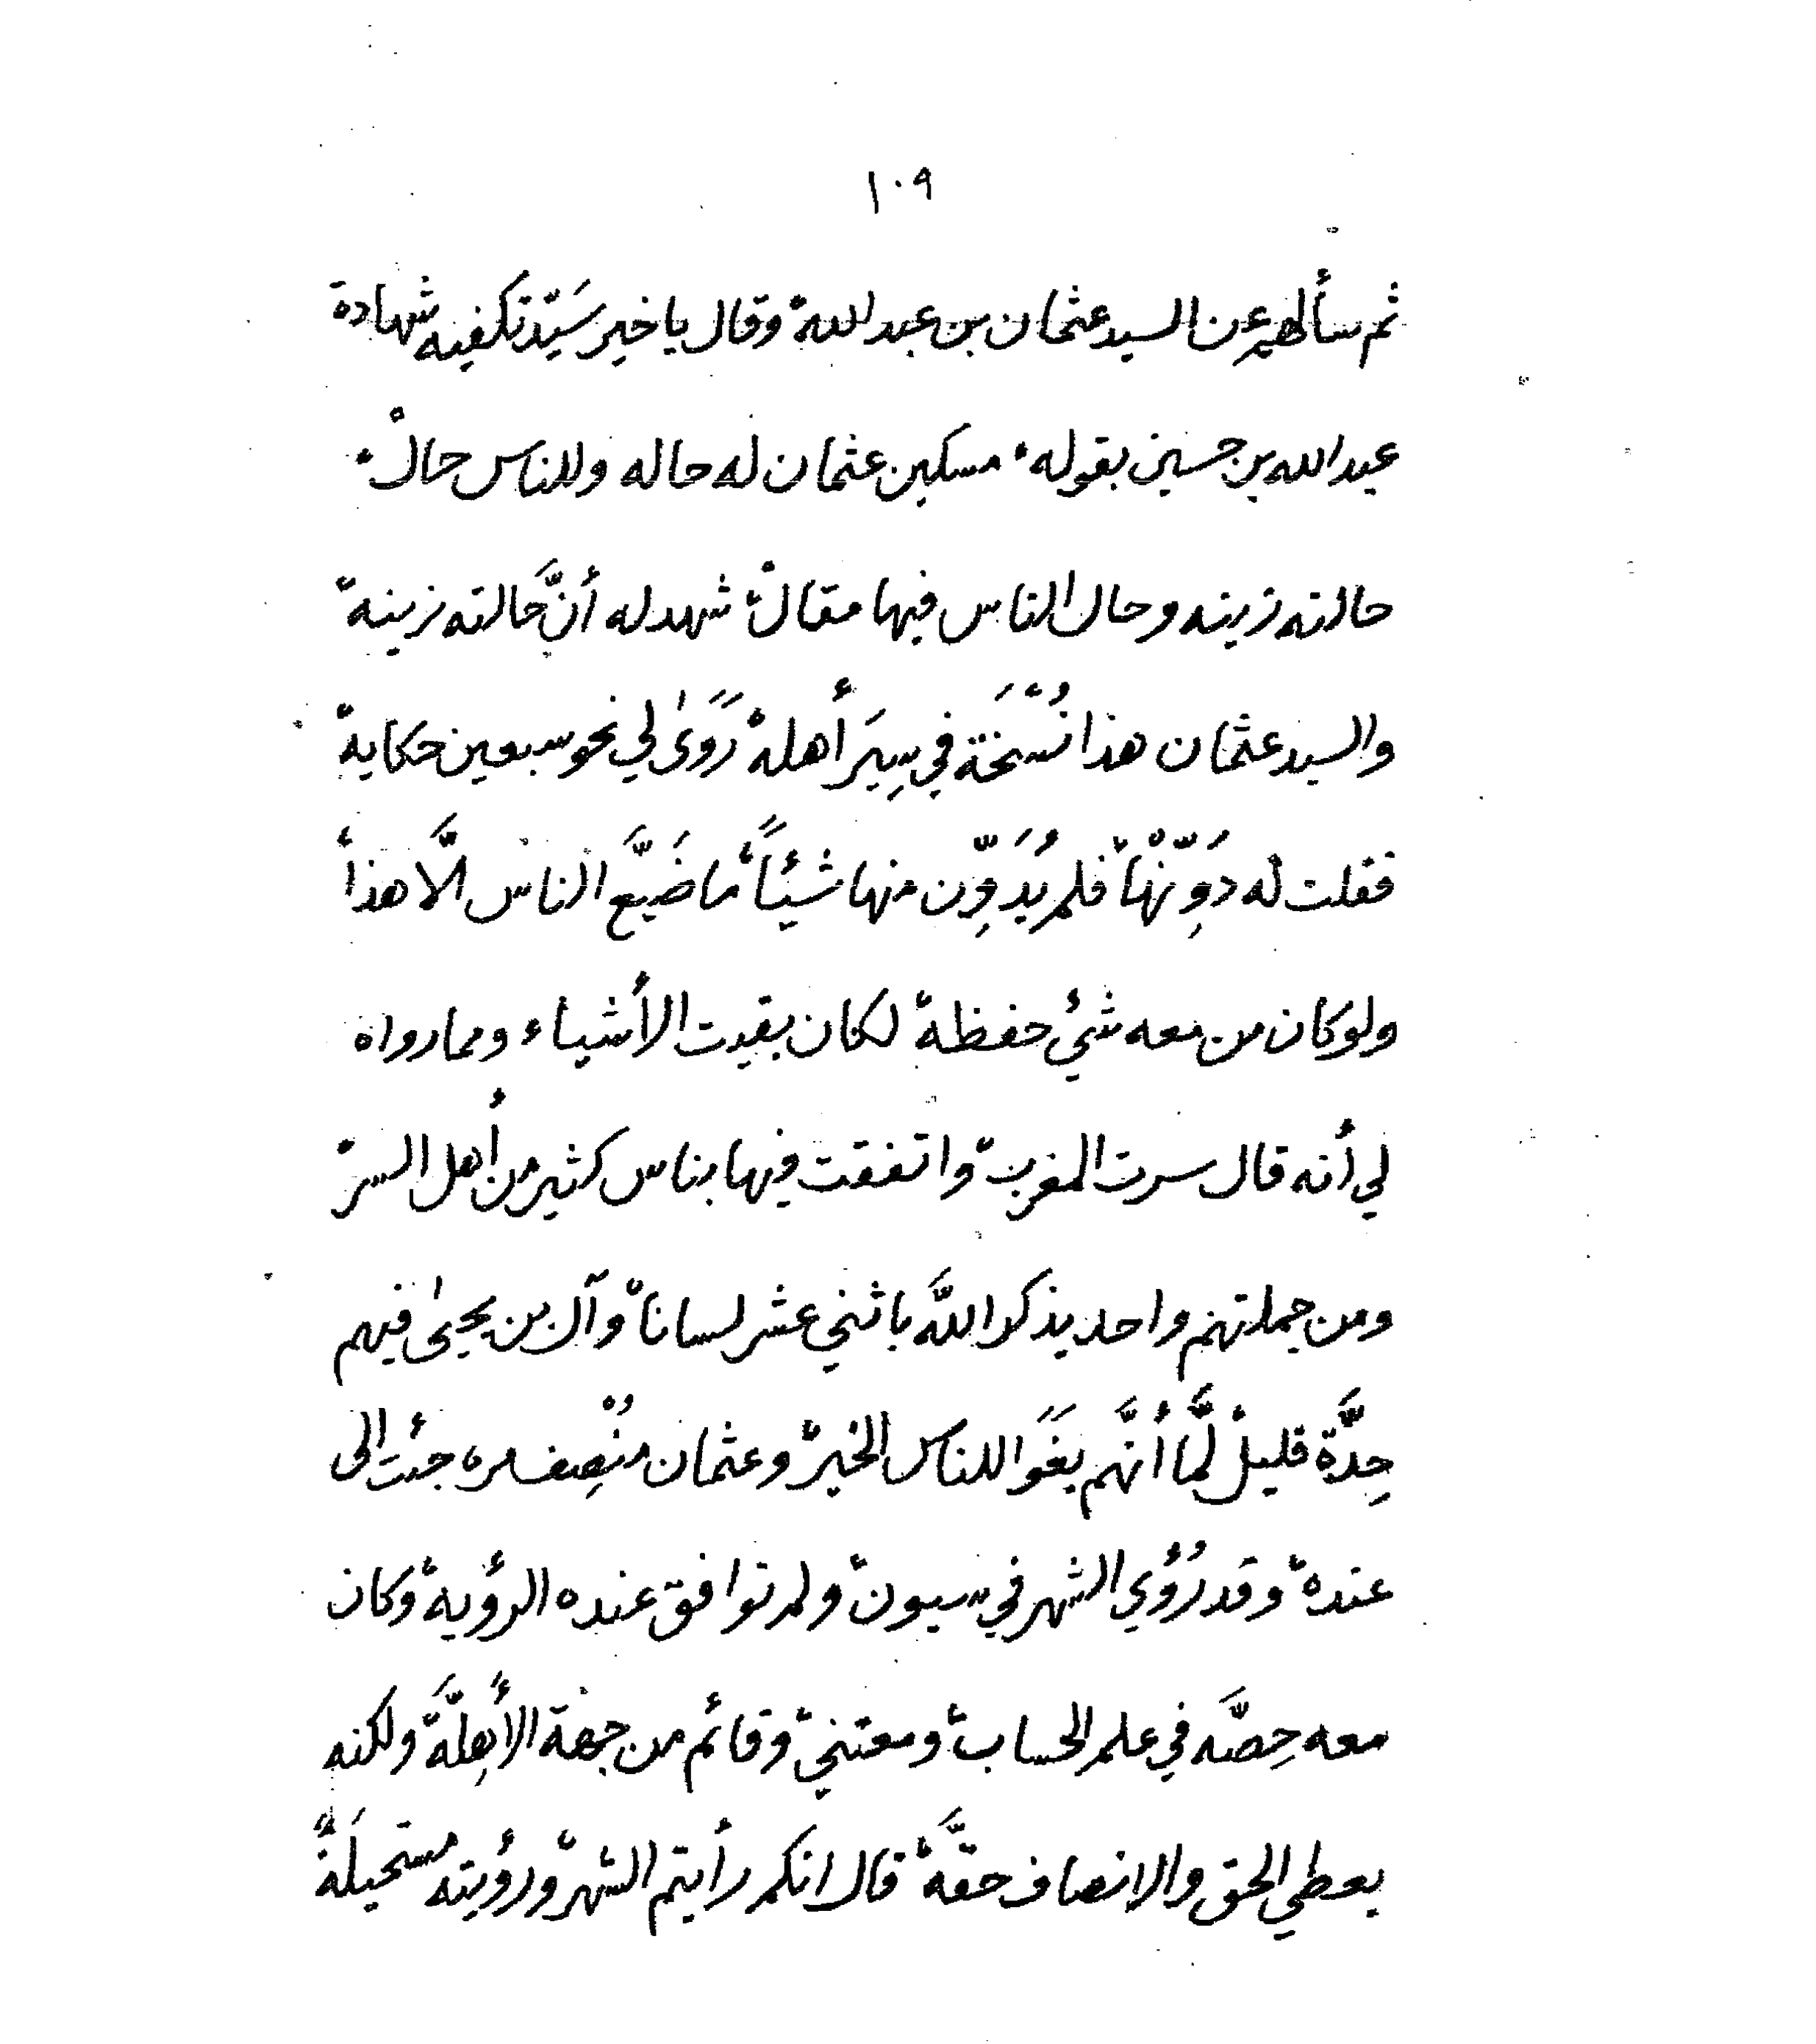 ١٠٩
ثم سألهم عن السيد عثمان بن عبدالله، وقال يا خير سَيّد تكفيه شهادة
عبدالله بن حسين بقوله، مسكين عثمان له حاله وللناس حالْ،
حالته زينه وحال الناس فيها مقالْ، شهد له أنَّ حالته زينه،
والسيد عثمان هذا نُسْخَة في سِيَر أهله، رَوَىٰ لي نحو سبعين حكاية،
فقلت له دَوِّنْها، فلم يُدَوِّن منها شيئاً، ما ضَيَّع الناس الَّا هذا،
ولو كان من معه شئ حفظه، لكان بقيت الأشياء ومما رواه
لي أنه قال سرت المغرب، واتفقت فيها بناس كثير من أهل السر،
ومن جملتهم واحد يذكر اللَّه باثني عشر لساناً، وآل بن يحيىٰ فيهم
حِدَّة قليل لَمَّا أنَّهم بَغَوا للناس الخير، وعثمان مُنْصِف مره جئت الى
عنده، وقد رُؤي الشهر في سيون، ولم توافق عنده الرؤية، وكان
معه حِصَّه في علم الحساب، ومعتني، وقائم من جهة الأَهِلَّة، ولكنه
يعطي الحق والانصاف حقَّه، قال انكم رأيتم الشهر، ورؤيته مستحيلَةٌ